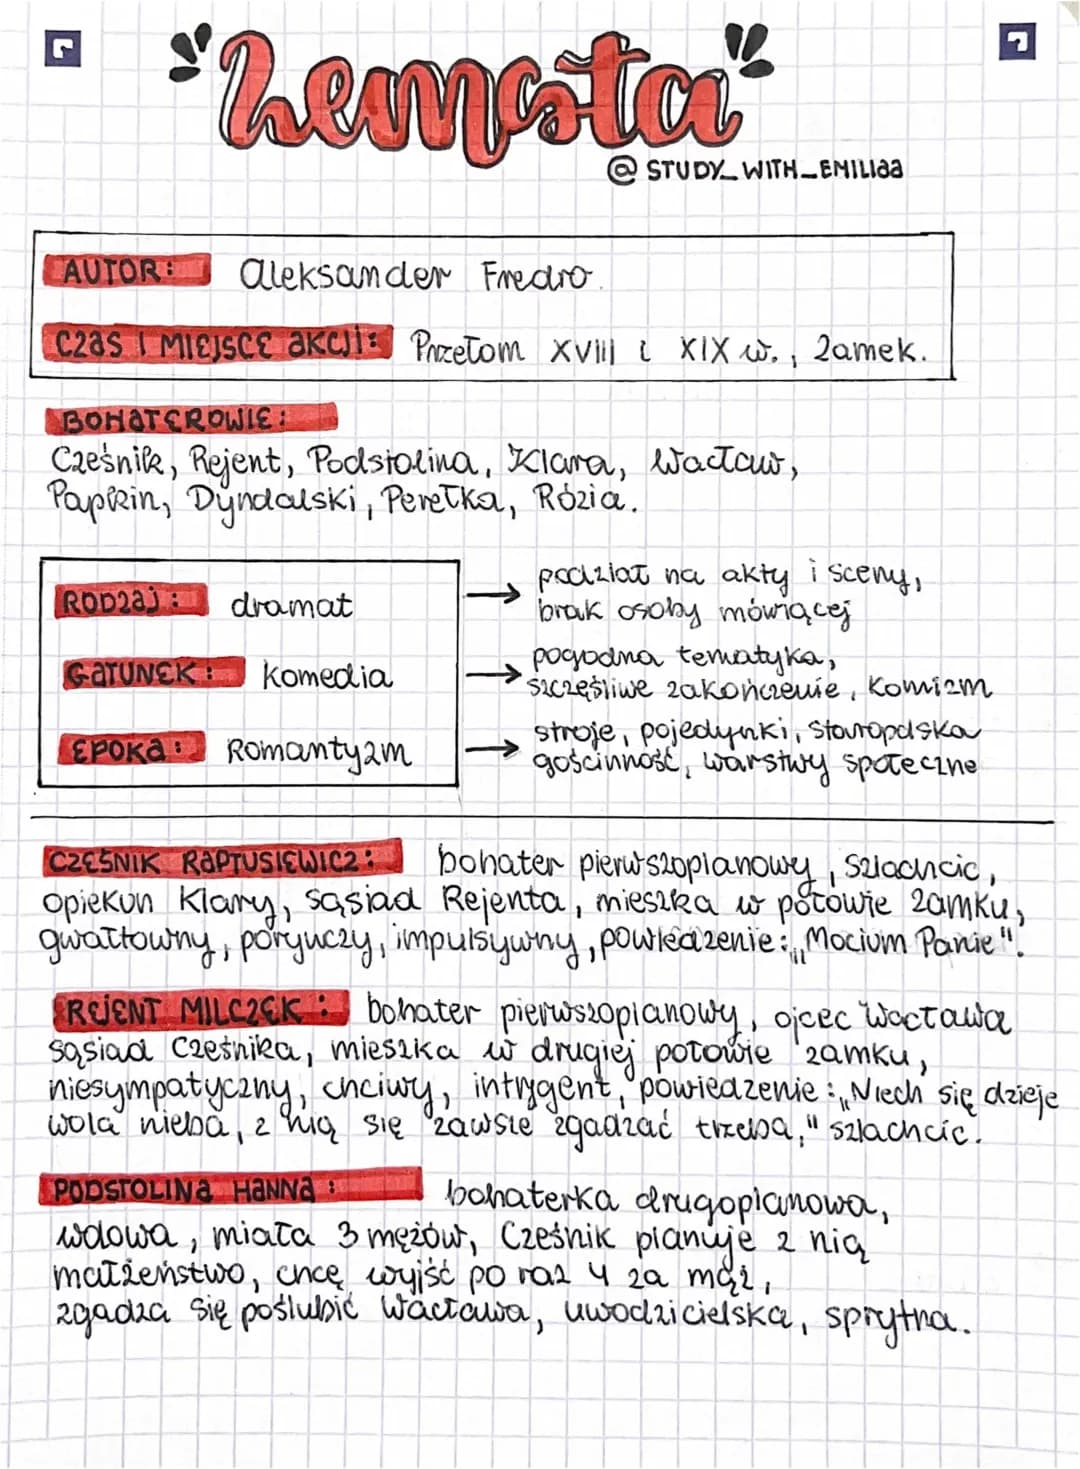 "Zemsta"
@ STUDY_WITH_EMILIaa
AUTOR: Aleksander Fredro.
CZAS I MIEJSCE AKCJI: Przełom XVIII i XIX w., Zamek.
BOHATEROWIE:
Cześnik, Rejent, Podstolina, Klara, Wacław,
Papkin, Dyndalski, Perełka, Rózia.
RODZAJ: dramat → podział na akty i sceny,
brak osoby mówiącej
GATUNEK: komedia → pogodna tematyka,
szczęśliwe zakończenie, Komizm
EPOKA: Romantyzm → stroje, pojedynki, staropolska
gościnność, warstwy społeczne
CZEŚNIK RAPTUSIEWICZ: bohater pierwszoplanowy, szlachcic,
opiekun Klary, sąsiad Rejenta, mieszka w połowie zamku,
gwałtowny, porywczy, impulsywny, powiedzenie: „Mocium Panie".
REJENT MILCZEK: bohater pierwszoplanowy, ojcec Wacława
sąsiad Cześnika, mieszka w drugiej połowie zamku,
niesympatyczny, chciwy, intrygent, powiedzenie: „Niech się dzieje
wola nieba, z nią się zawsze zgadzać trzeba," szlachcic.
PODSTOLINA HANNA: bohaterka drugoplanowa,
wdowa, miała 3 mężów, Cześnik planuje z nią
małżeństwo, chcę wyjść po raz 4 za mąż,
zgadza się poślubić Wacława, uwodzicielska, sprytna.